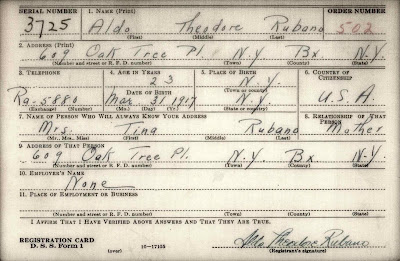 SERIAL NUMBER 1. NAME (Print) ORDER NUMBER
3725 Aldo Theodore Rubano 502
(First) (Middle) (Last)
2. ADDRESS (Print)
609 Oak Tree Pl. N.Y. Bx N.Y.
(Number and street or R. F. D. number) (Town) (County) (State)
3. TELEPHONE 4. AGE IN YEARS 5. PLACE OF BIRTH 6. COUNTRY OF CITIZENSHIP
23 N.Y.
DATE OF BIRTH (Town or county)
Ra-5880 Mar. 31 1917 N.Y. U.S.A.
(Mo.) (Day) (Yr.) (State or country)
7. NAME OF PERSON WHO WILL ALWAYS KNOW YOUR ADDRESS 8. RELATIONSHIP OF THAT PERSON
Mrs. Tina Rubano Mother
(Mr., Mrs., Miss) (First) (Middle) (Last)
9. ADDRESS OF THAT PERSON
609 Oak Tree Pl. N.Y. Bx N.Y.
(Number and street or R. F. D. number) (Town) (County) (State)
10. EMPLOYER'S NAME
None
11. PLACE OF EMPLOYMENT OR BUSINESS
(Number and street or R. F. D. number) (Town) (County) (State)
I AFFIRM THAT I HAVE VERIFIED ABOVE ANSWERS AND THAT THEY ARE TRUE.
REGISTRATION CARD Aldo Theodore Rubano
D. S. S. Form 1 (over) 16—17105 (Registrant's signature)